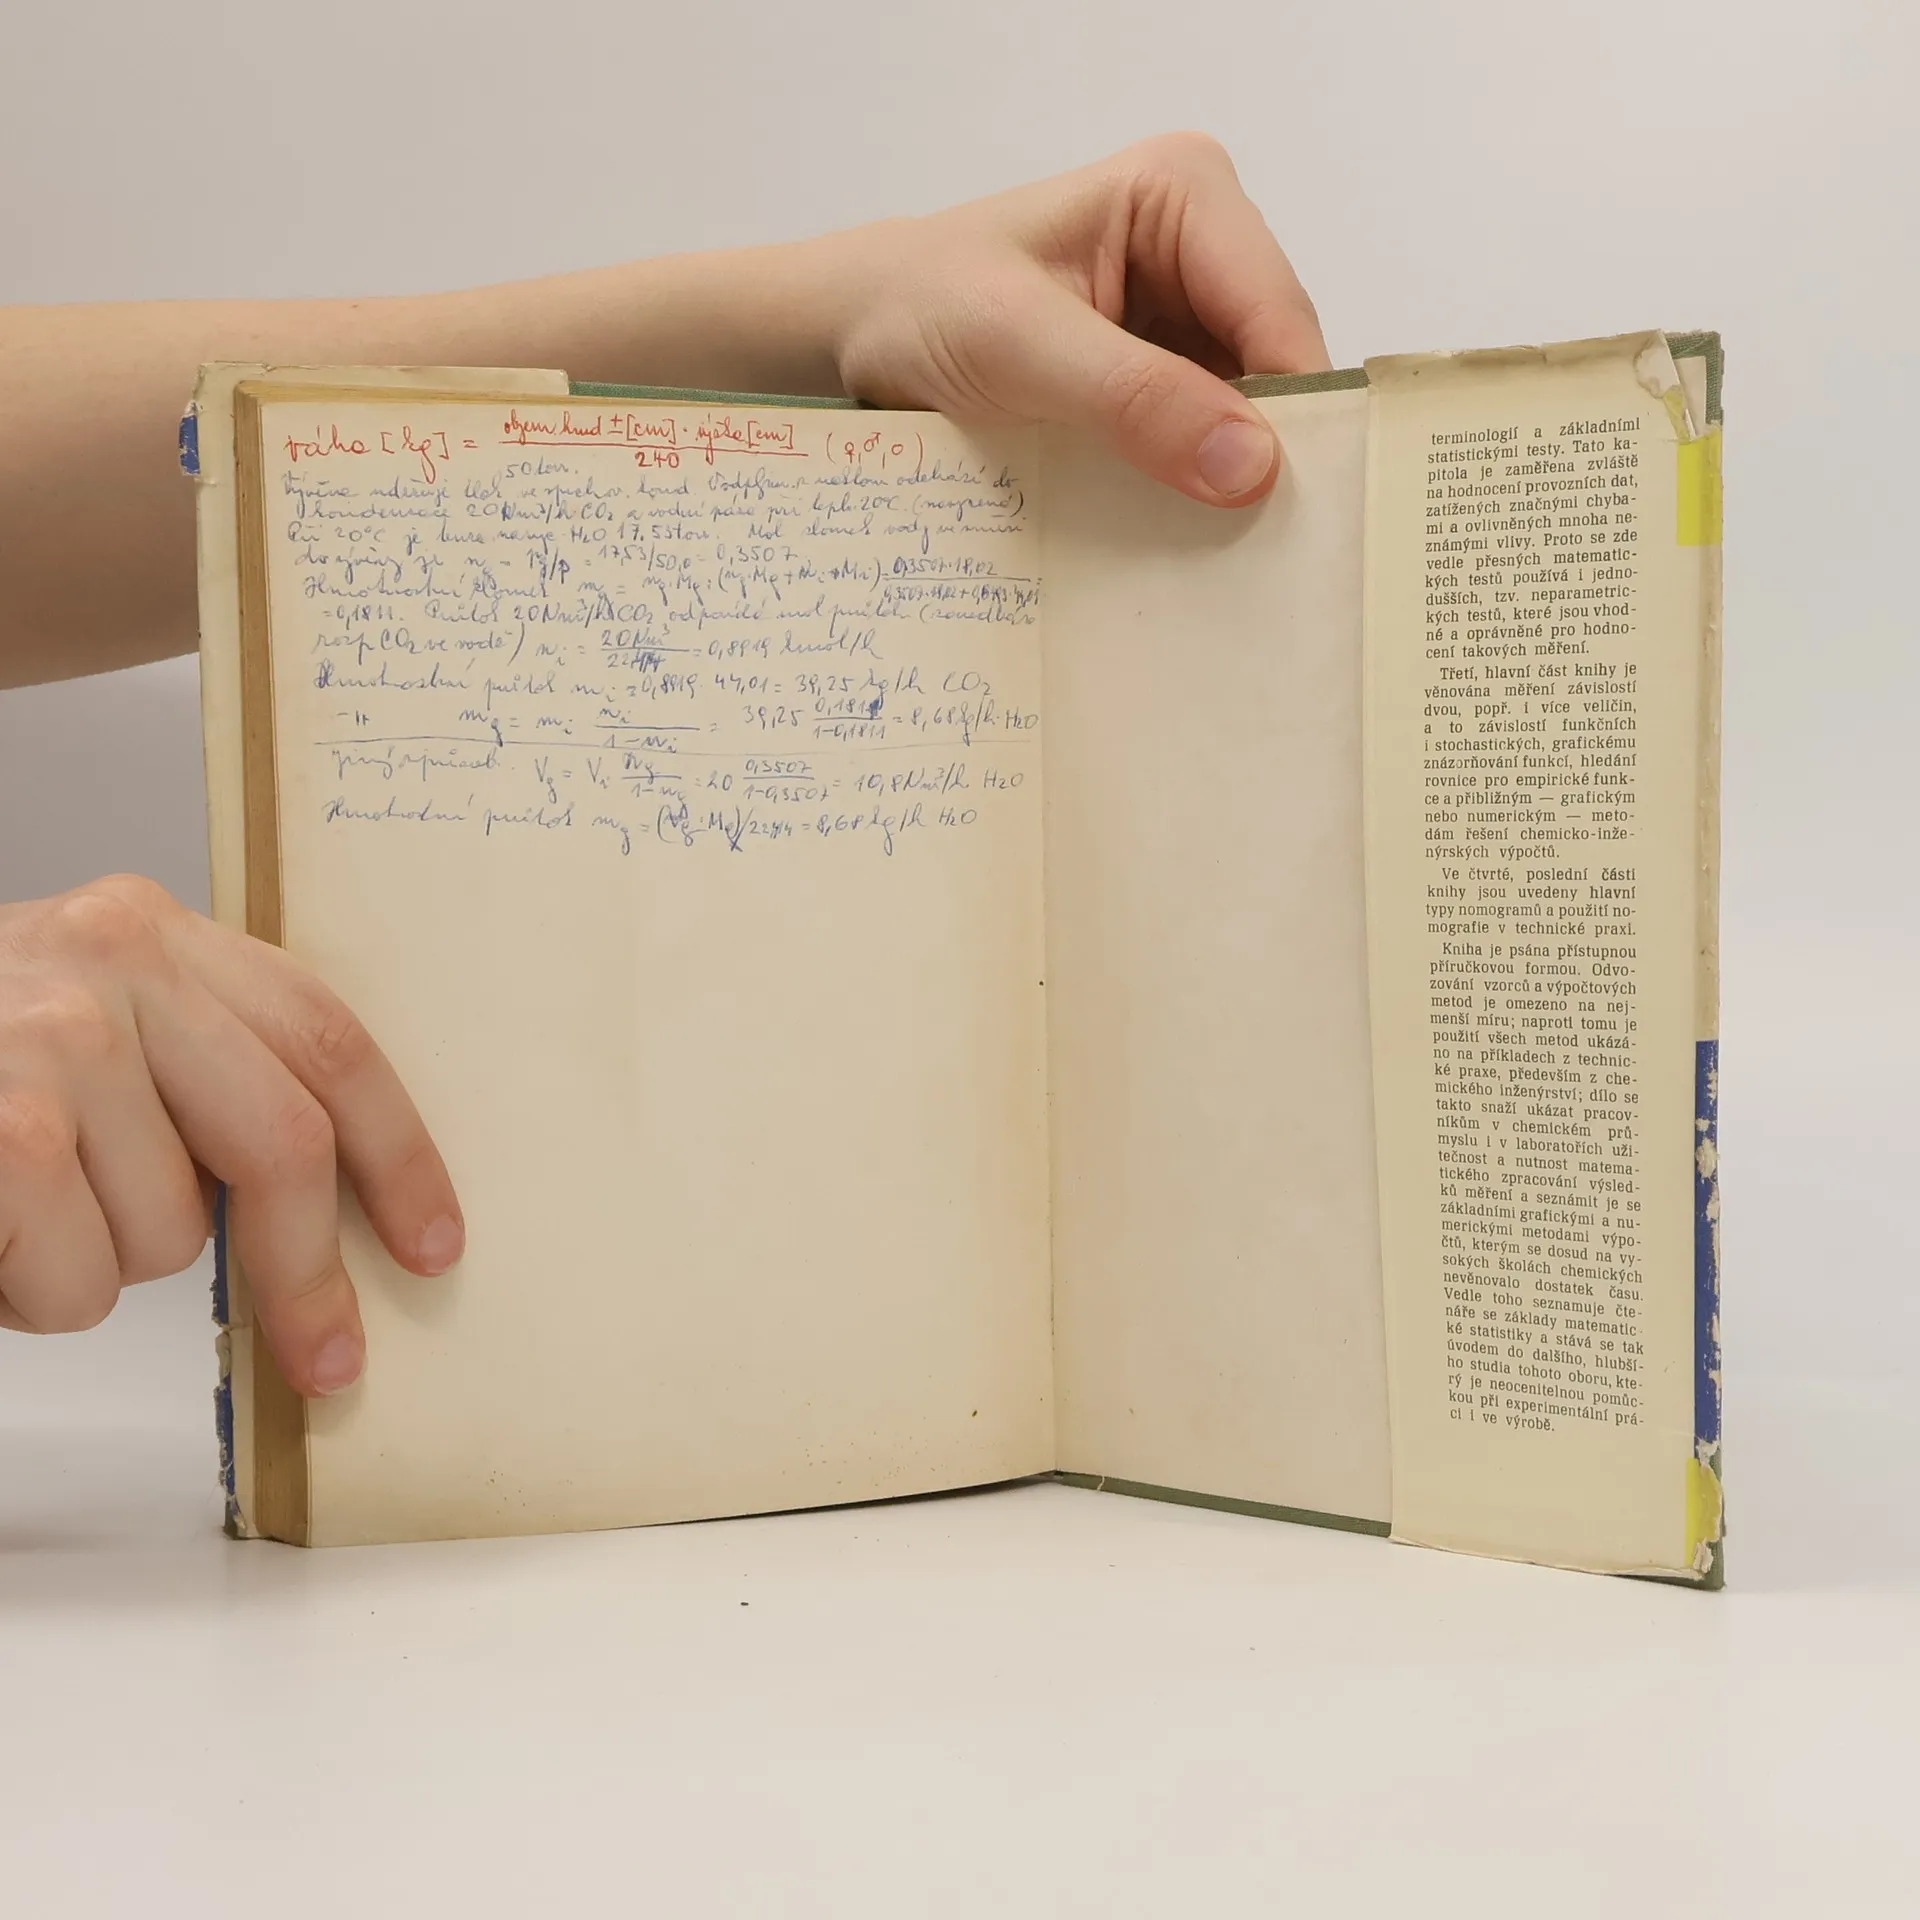 váha [kg] = objem hrud ± [cm] · výška [cm] / 240 (♀,♂,○)
50 torr.
Vývěva udržuje tlak ve spichov. kond. odchází do
kondenzace 20 Nm³/h CO₂ a vodní pára při tepl. 20°C. (nasycená)
Při 20°C je tenze H₂O 17,53 torr. Mol zlomek vody ve směsi
do vývěvy je = 17,53/50,0 = 0,3507
Hmotnostní zlomek 0,3507·18,02
= 0,1811. Průtok 20 Nm³/h CO₂ odpovídá mol průtoku (zanedbáno
rozp CO₂ ve vodě) nᵢ = 20 Nm³ / 22,414 = 0,8919 kmol/h
Hmotnostní průtok mᵢ = 0,8919 · 44,01 = 39,25 kg/h CO₂
-"- m_g = mᵢ wᵢ / 1-wᵢ = 39,25 0,1811 / 1-0,1811 = 8,68 kg/h H₂O
Jiný způsob. V_g = Vᵢ n_g / 1-n_g = 20 0,3507 / 1-0,3507 = 10,8 Nm³/h H₂O
Hmotnostní průtok m_g = (V_g·M_g)/22,414 = 8,68 kg/h H₂O
terminologií a základními
statistickými testy. Tato ka-
pitola je zaměřena zvláště
na hodnocení provozních dat,
zatížených značnými chyba-
mi a ovlivněných mnoha ne-
známými vlivy. Proto se zde
vedle přesných matematic-
kých testů používá i jedno-
dušších, tzv. neparametric-
kých testů, které jsou vhod-
né a oprávněné pro hodno-
cení takových měření.
Třetí, hlavní část knihy je
věnována měření závislostí
dvou, popř. i více veličin,
a to závislostí funkčních
i stochastických, grafickému
znázorňování funkcí, hledání
rovnice pro empirické funk-
ce a přibližným — grafickým
nebo numerickým — meto-
dám řešení chemicko-inže-
nýrských výpočtů.
Ve čtvrté, poslední části
knihy jsou uvedeny hlavní
typy nomogramů a použití no-
mografie v technické praxi.
Kniha je psána přístupnou
příručkovou formou. Odvo-
zování vzorců a výpočtových
metod je omezeno na nej-
menší míru; naproti tomu je
použití všech metod ukázá-
no na příkladech z technic-
ké praxe, především z che-
mického inženýrství; dílo se
takto snaží ukázat pracov-
níkům v chemickém prů-
myslu i v laboratořích uži-
tečnost a nutnost matema-
tického zpracování výsled-
ků měření a seznámit je se
základními grafickými a nu-
merickými metodami výpo-
čtů, kterým se dosud na vy-
sokých školách chemických
nevěnovalo dostatek času.
Vedle toho seznamuje čte-
náře se základy matematic-
ké statistiky a stává se tak
úvodem do dalšího, hlubší-
ho studia tohoto oboru, kte-
rý je neocenitelnou pomůc-
kou při experimentální prá-
ci i ve výrobě.